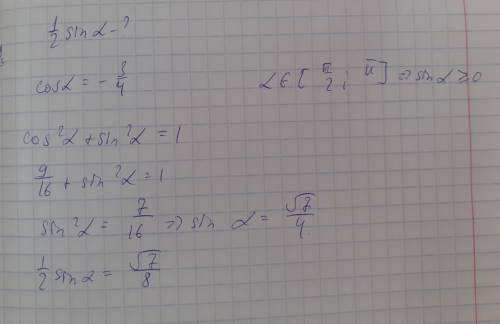 1/2 sin α - ?
cos α = - 3/4    α ∈ [π/2; π] ⇒ sin α ≥ 0
cos²α + sin²α = 1
9/16 + sin²α = 1
sin²α = 7/16 ⇒ sin α = √7/4
1/2 sin α = √7/8